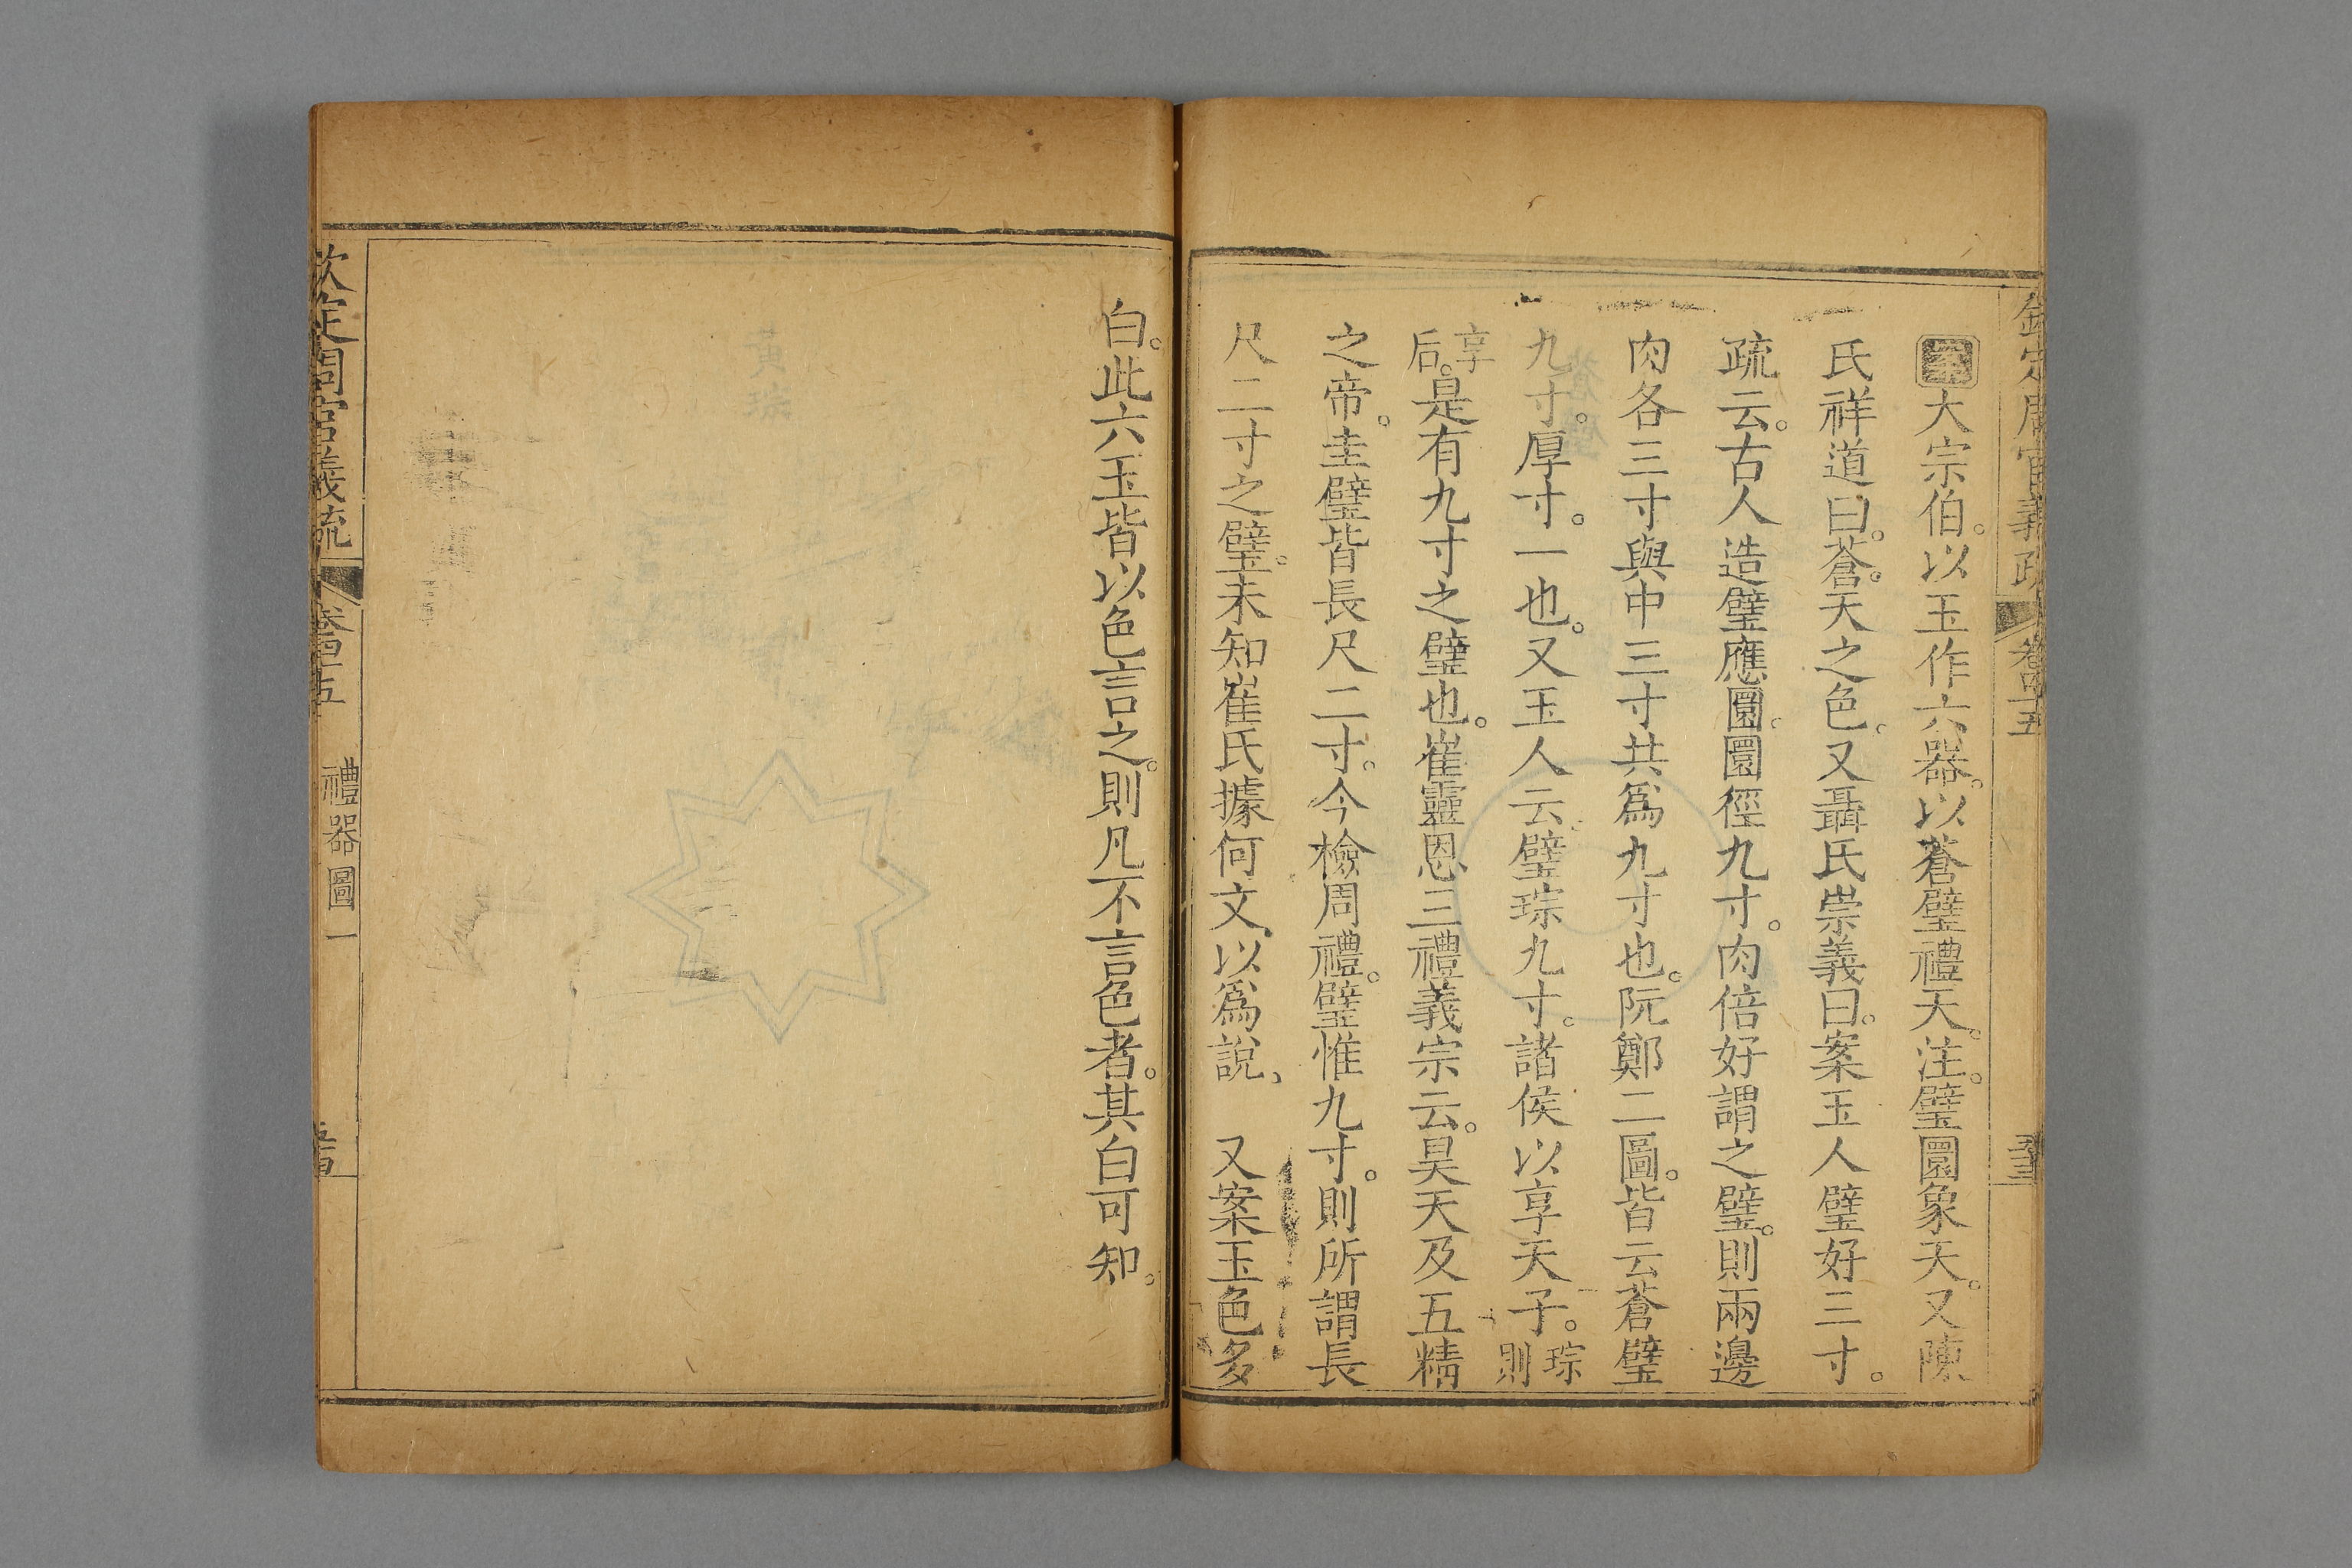 欽定周官義疏 卷四十五
案大宗伯。以玉作六器。以蒼璧禮天。注。璧圜象天。又陳
氏祥道曰。蒼。天之色。又聶氏崇義曰。案玉人璧好三寸。
疏云。古人造璧應圜。圜徑九寸。肉倍好謂之璧。則兩邊
肉各三寸與中三寸共爲九寸也。阮鄭二圖。皆云蒼璧
九寸。厚寸。一也。又玉人云。璧琮九寸。諸侯以享天子。琮則
享后。是有九寸之璧也。崔靈恩三禮義宗云。昊天及五精
之帝。圭璧皆長尺二寸。今檢周禮。璧惟九寸。則所謂長
尺二寸之璧。未知崔氏據何文。以爲說、 又案玉色多
白。此六玉皆以色言之。則凡不言色者。其白可知。
欽定周官義疏 卷四十五 禮器圖一